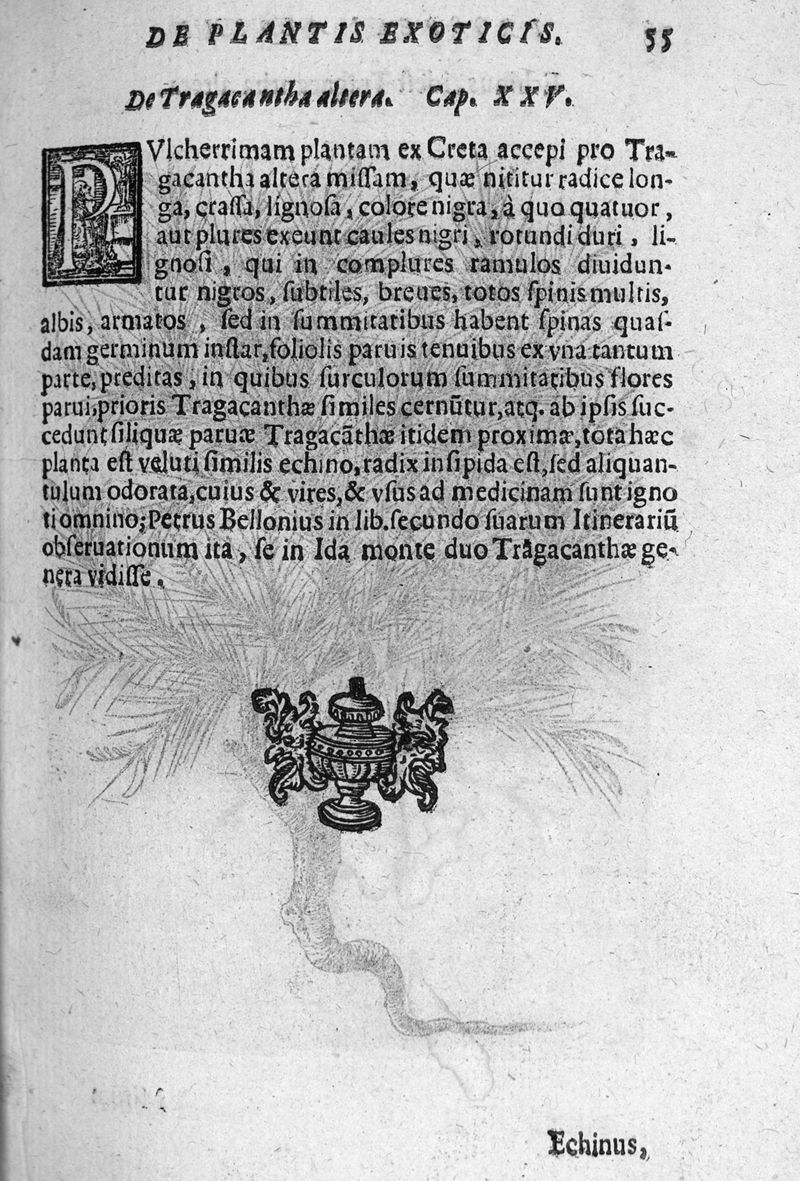 DE PLANTIS EXOTICIS. 55
De Tragacantha altera. Cap. XXV.
PVlcherrimam plantam ex Creta accepi pro Tra-
gacantha altera miſſam, quæ nititur radice lon-
ga, craſſa, lignoſa, colore nigra, à quo quatuor,
aut plures exeunt caules nigri, rotundi duri, li-
gnoſi, qui in complures ramulos diuidun-
tur nigros, ſubtiles, breues, totos ſpinis multis,
albis, armatos, ſed in ſummitatibus habent ſpinas quaſ-
dam germinum inſtar, foliolis paruis tenuibus ex vna tantum
parte, preditas, in quibus ſurculorum ſummitatibus flores
parui, prioris Tragacanthæ ſimiles cernūtur, atq. ab ipſis ſuc-
cedunt ſiliquæ paruæ Tragacāthæ itidem proximæ, tota hæc
planta eſt veluti ſimilis echino, radix inſipida eſt, ſed aliquan-
tulum odorata, cuius & vires, & vſus ad medicinam ſunt igno
ti omnino; Petrus Bellonius in lib. ſecundo ſuarum Itinerariū
obſeruationum ita, ſe in Ida monte duo Tragacanthæ ge-
nera vidiſſe.
Echinus,